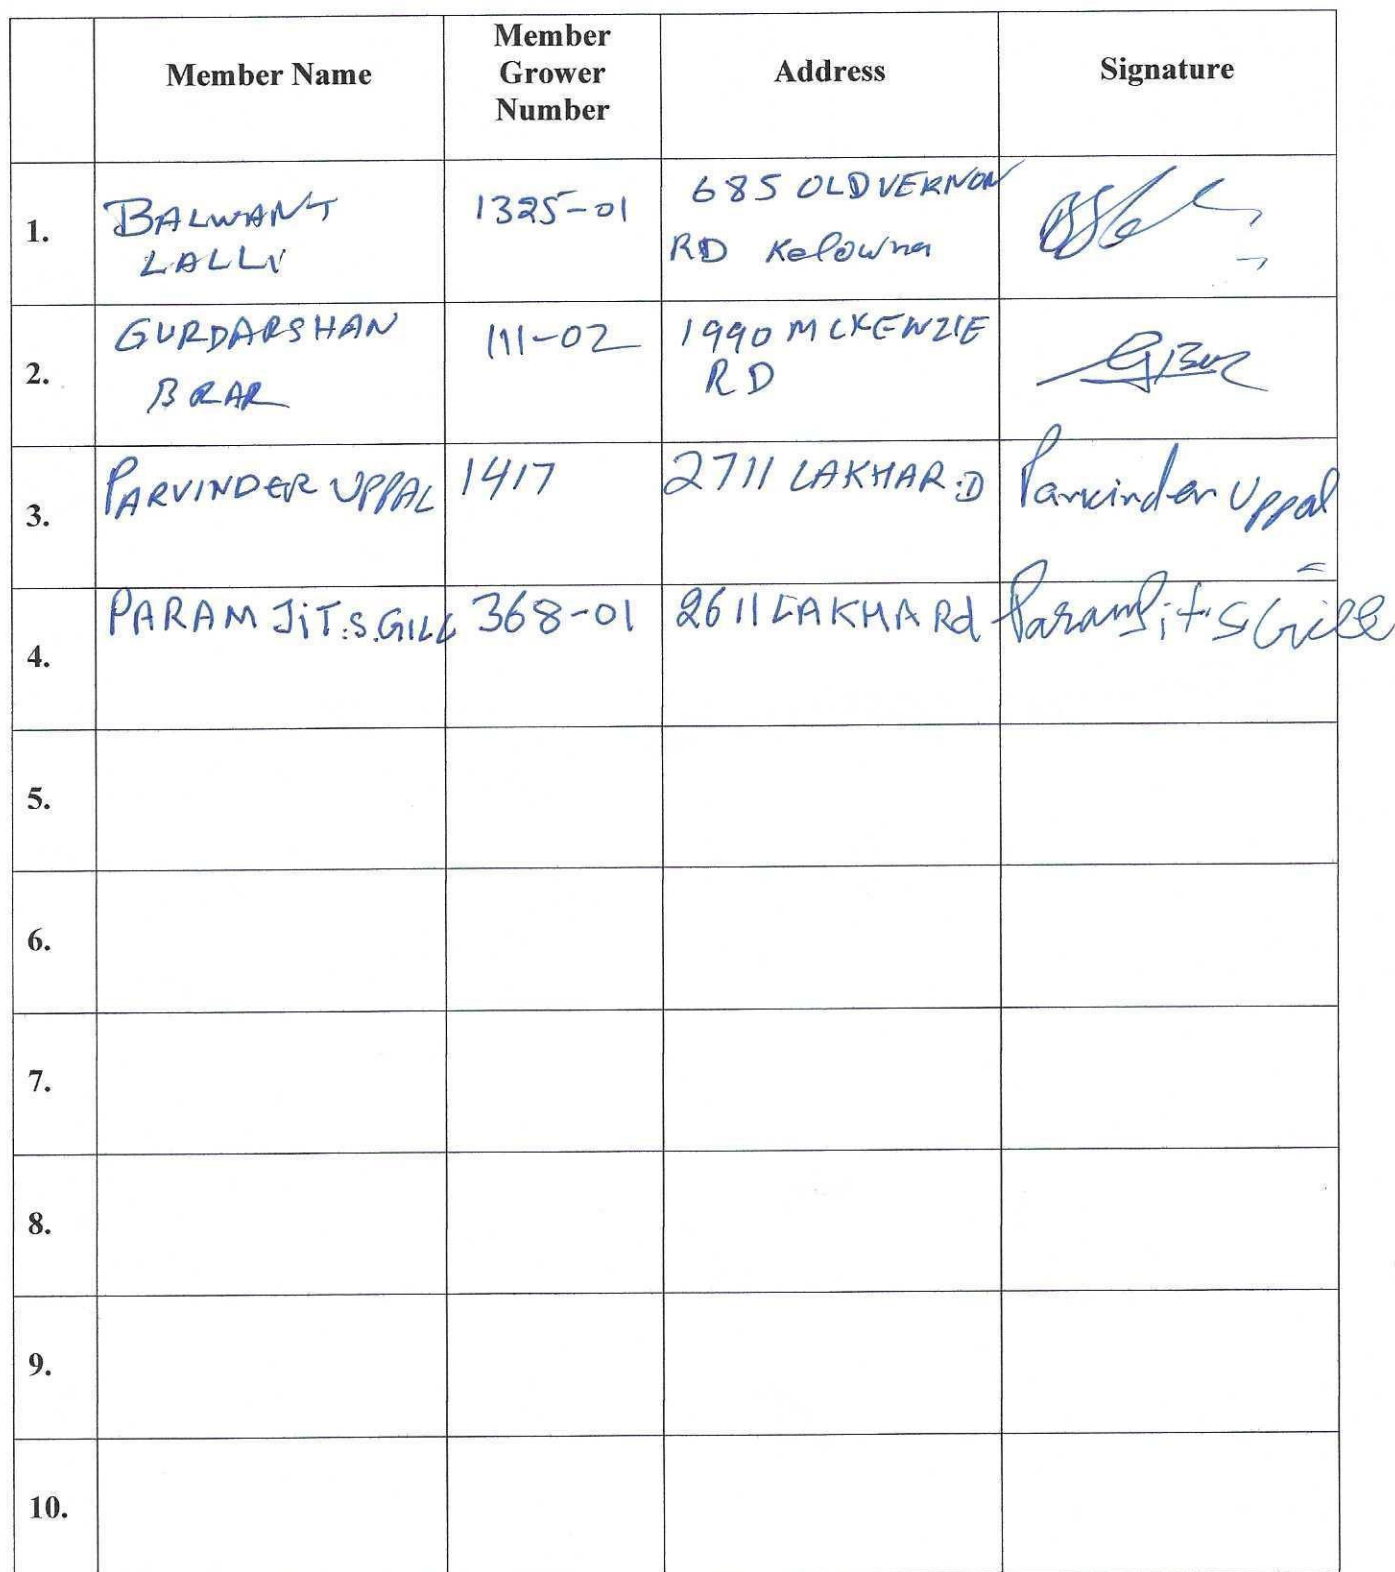 Member Name
Member
Grower
Number
Address
Signature
1.
BALWANT
LALLI
1325-01
685 OLD VERNON
RD Kelowna
2.
GURDARSHAN
BRAR
111-02
1990 MCKENZIE
RD
3.
PARVINDER UPPAL
1417
2711 LAKHA R.D
Parvinder Uppal
4.
PARAM JiT.S.GILL
368-01
2611 LAKHA Rd
Paramjit S Gill
5.
6.
7.
8.
9.
10.